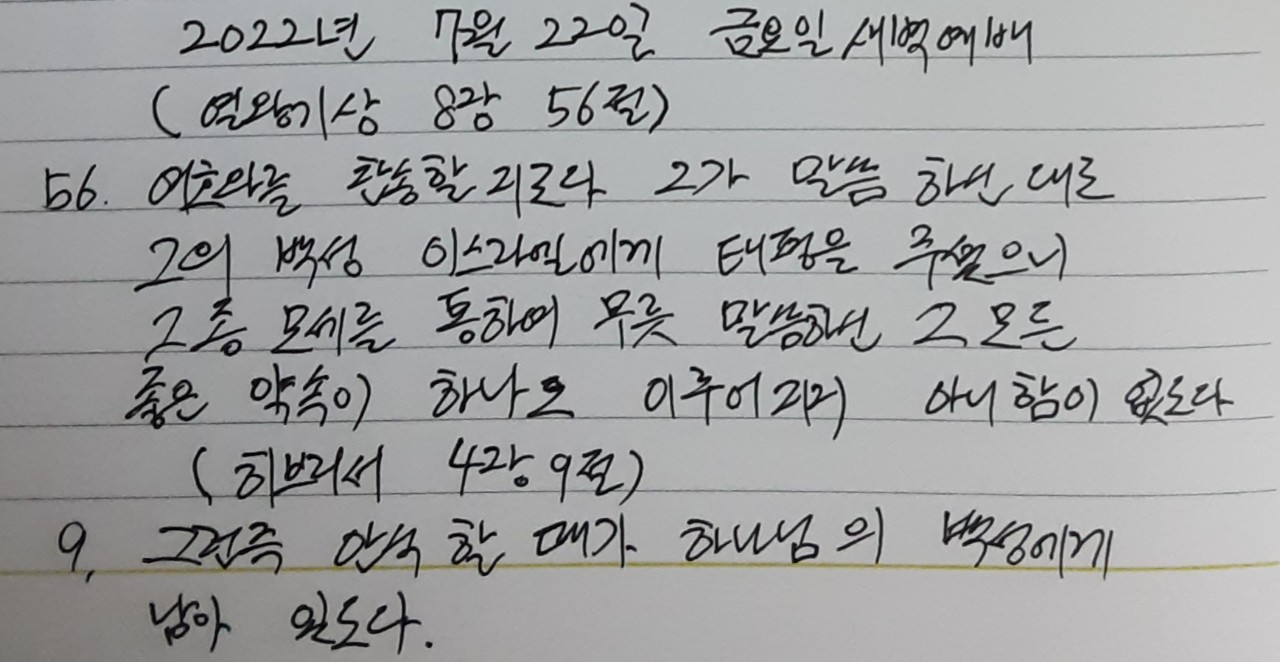 2022년 7월 22일 금요일 새벽예배
(열왕기상 8장 56절)
56. 여호와를 찬송할지로다 그가 말씀하신 대로
그의 백성 이스라엘에게 태평을 주셨으니
그 종 모세를 통하여 무릇 말씀하신 그 모든
좋은 약속이 하나도 이루어지지 아니함이 없도다
(히브리서 4장 9절)
9. 그런즉 안식할 때가 하나님의 백성에게
남아 있도다.